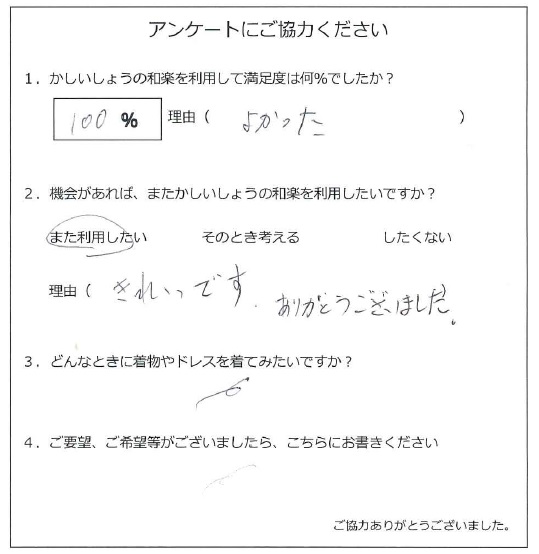 アンケートにご協力ください
1．かしいしょうの和楽を利用して満足度は何%でしたか？
100 % 理由（ よかった ）
2．機会があれば、またかしいしょうの和楽を利用したいですか？
また利用したい そのとき考える したくない
理由（ きれいっです. ありがとうございました。
3．どんなときに着物やドレスを着てみたいですか？
4．ご要望、ご希望等がございましたら、こちらにお書きください
ご協力ありがとうございました。